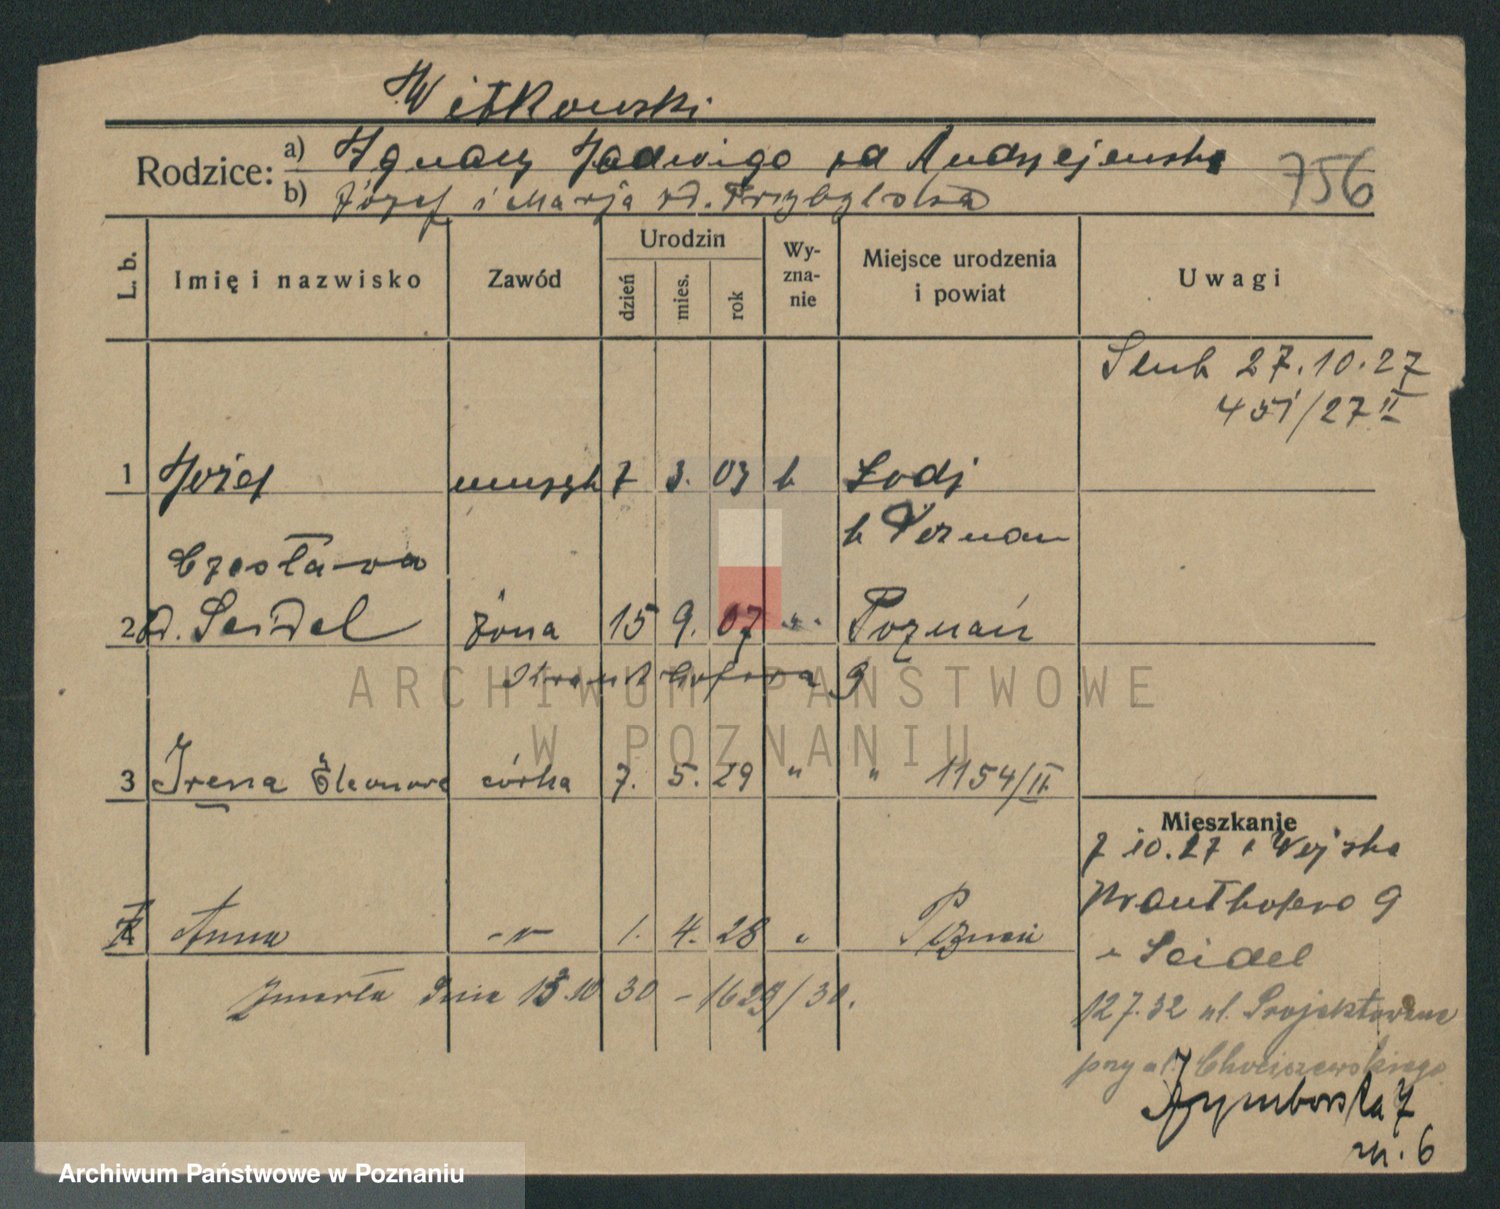 Witkowski
Rodzice: a) Ignacy Jadwiga zd Andrzejewska
b) Józef i Marja zd. Przybylska
756
L. b.
Imię i nazwisko
Zawód
Urodzin
dzień
mies.
rok
Wy-
zna-
nie
Miejsce urodzenia
i powiat
Uwagi
Slub 27.10.27
451/27 II
1 Józef 7 3. 03 k Łodz
k Poznan
Czesława
2 zd. Seidel żona 15 9. 07 " Poznań
9
3 Irena Eleonora córka 7. 5. 29 " " 1154/II
Mieszkanie
7 10.27 z Wojska
Grauthofera 9
Seidel
4 Anna -"- 1. 4. 28 " Poznań
zmarła dnia 15.10 30 - 1629/30.
12 7.32 ul. Projektowana
przy ul. Chociszewskiego
Szymborska 7
m. 6
ARCHIWUM PAŃSTWOWE
W POZNANIU
Archiwum Państwowe w Poznaniu